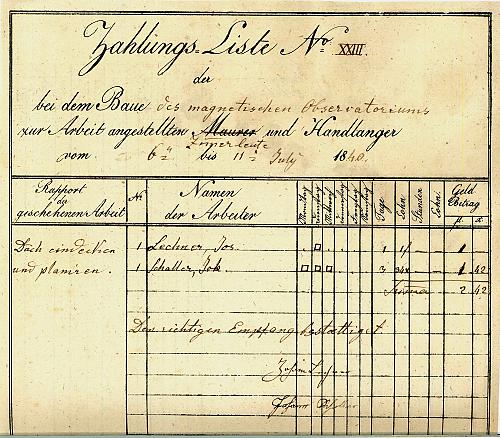 Zahlungs-Liste No XXIII.
der
bei dem Baue des magnetischen Observatoriums
zur Arbeit angestellten Maurer und Handlanger
Zimerleute
vom 6ten bis 11ten July 1840.
Rapport der geschehenen Arbeit Nr Namen der Arbeiter Montag Dienstag Mittwoch Donnerstag Freytag Samstag Tage Lohn Stunden Lohn Geld Betrag
fl. x
Dach eindecken 1 Lechner, Jos. 1 1/ 1
und planiren. 1 Schaller, Joh 3 34x 1 42
Suma 2 42
Den richtigen Empfang bestättiget
Johann